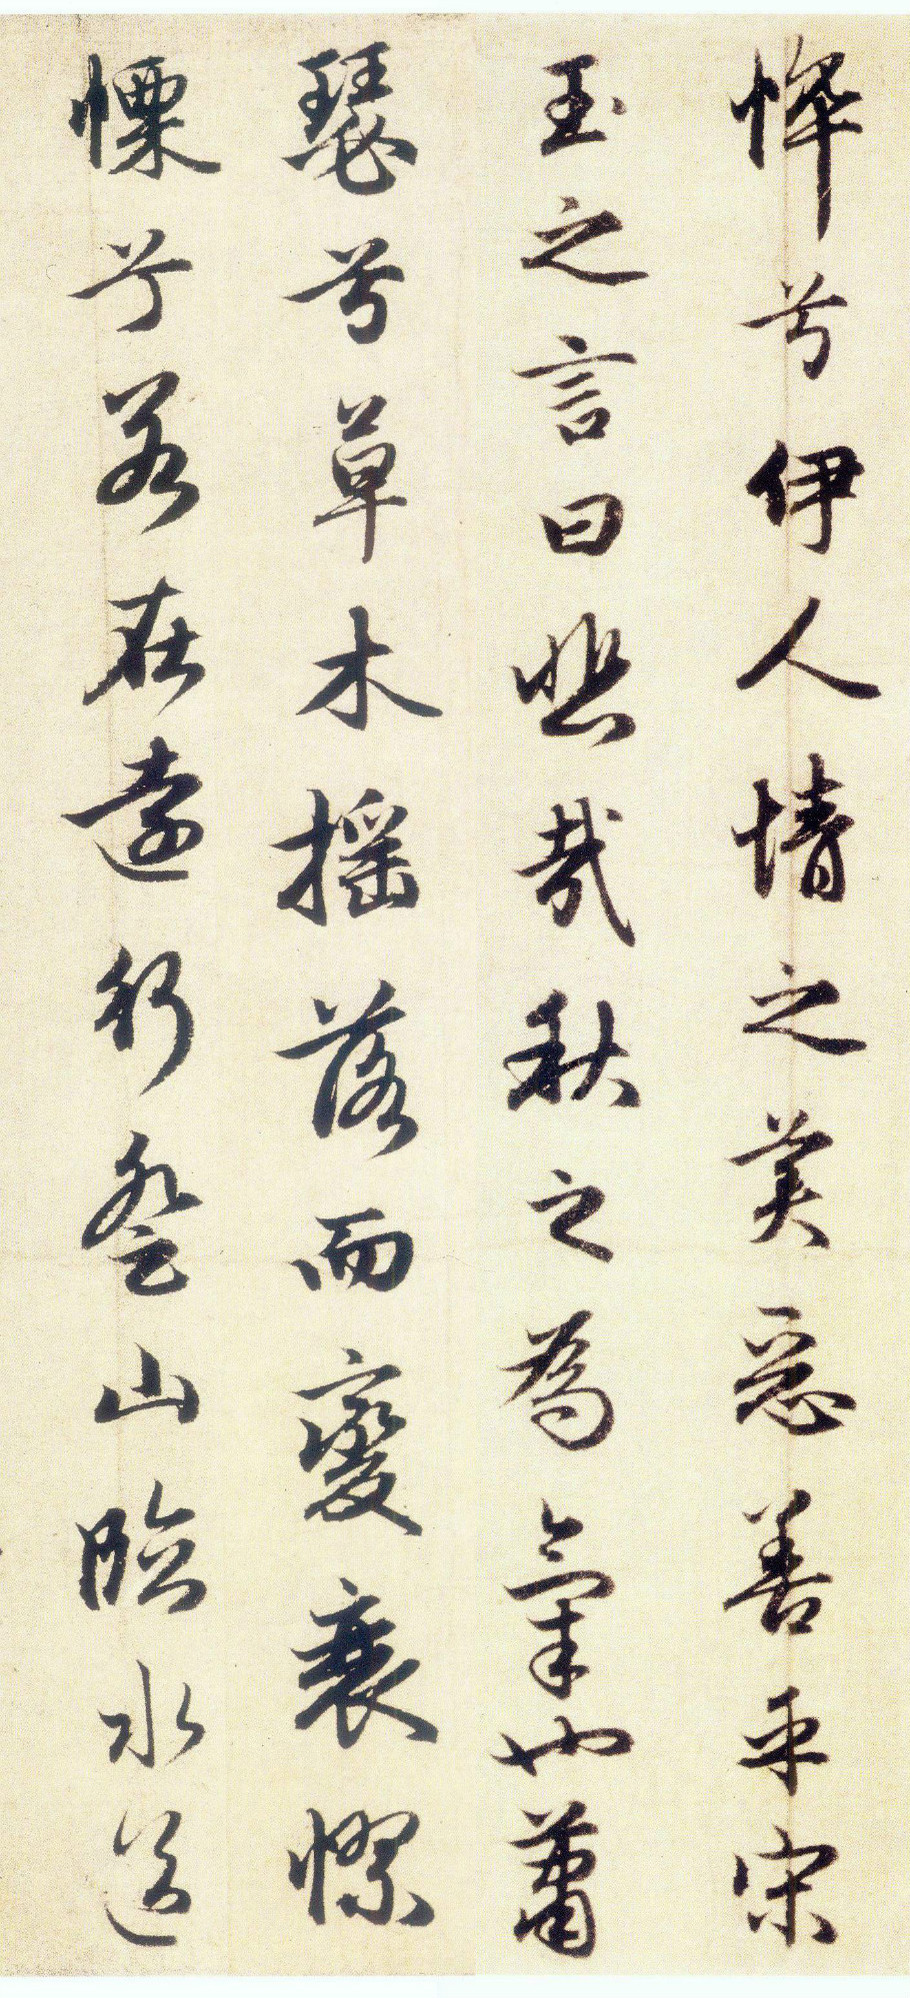 悴兮伊人情之美惡善乎宋
玉之言曰悲哉秋之為氣也蕭
瑟兮草木搖落而變衰憭
慄兮若在遠行登山臨水送